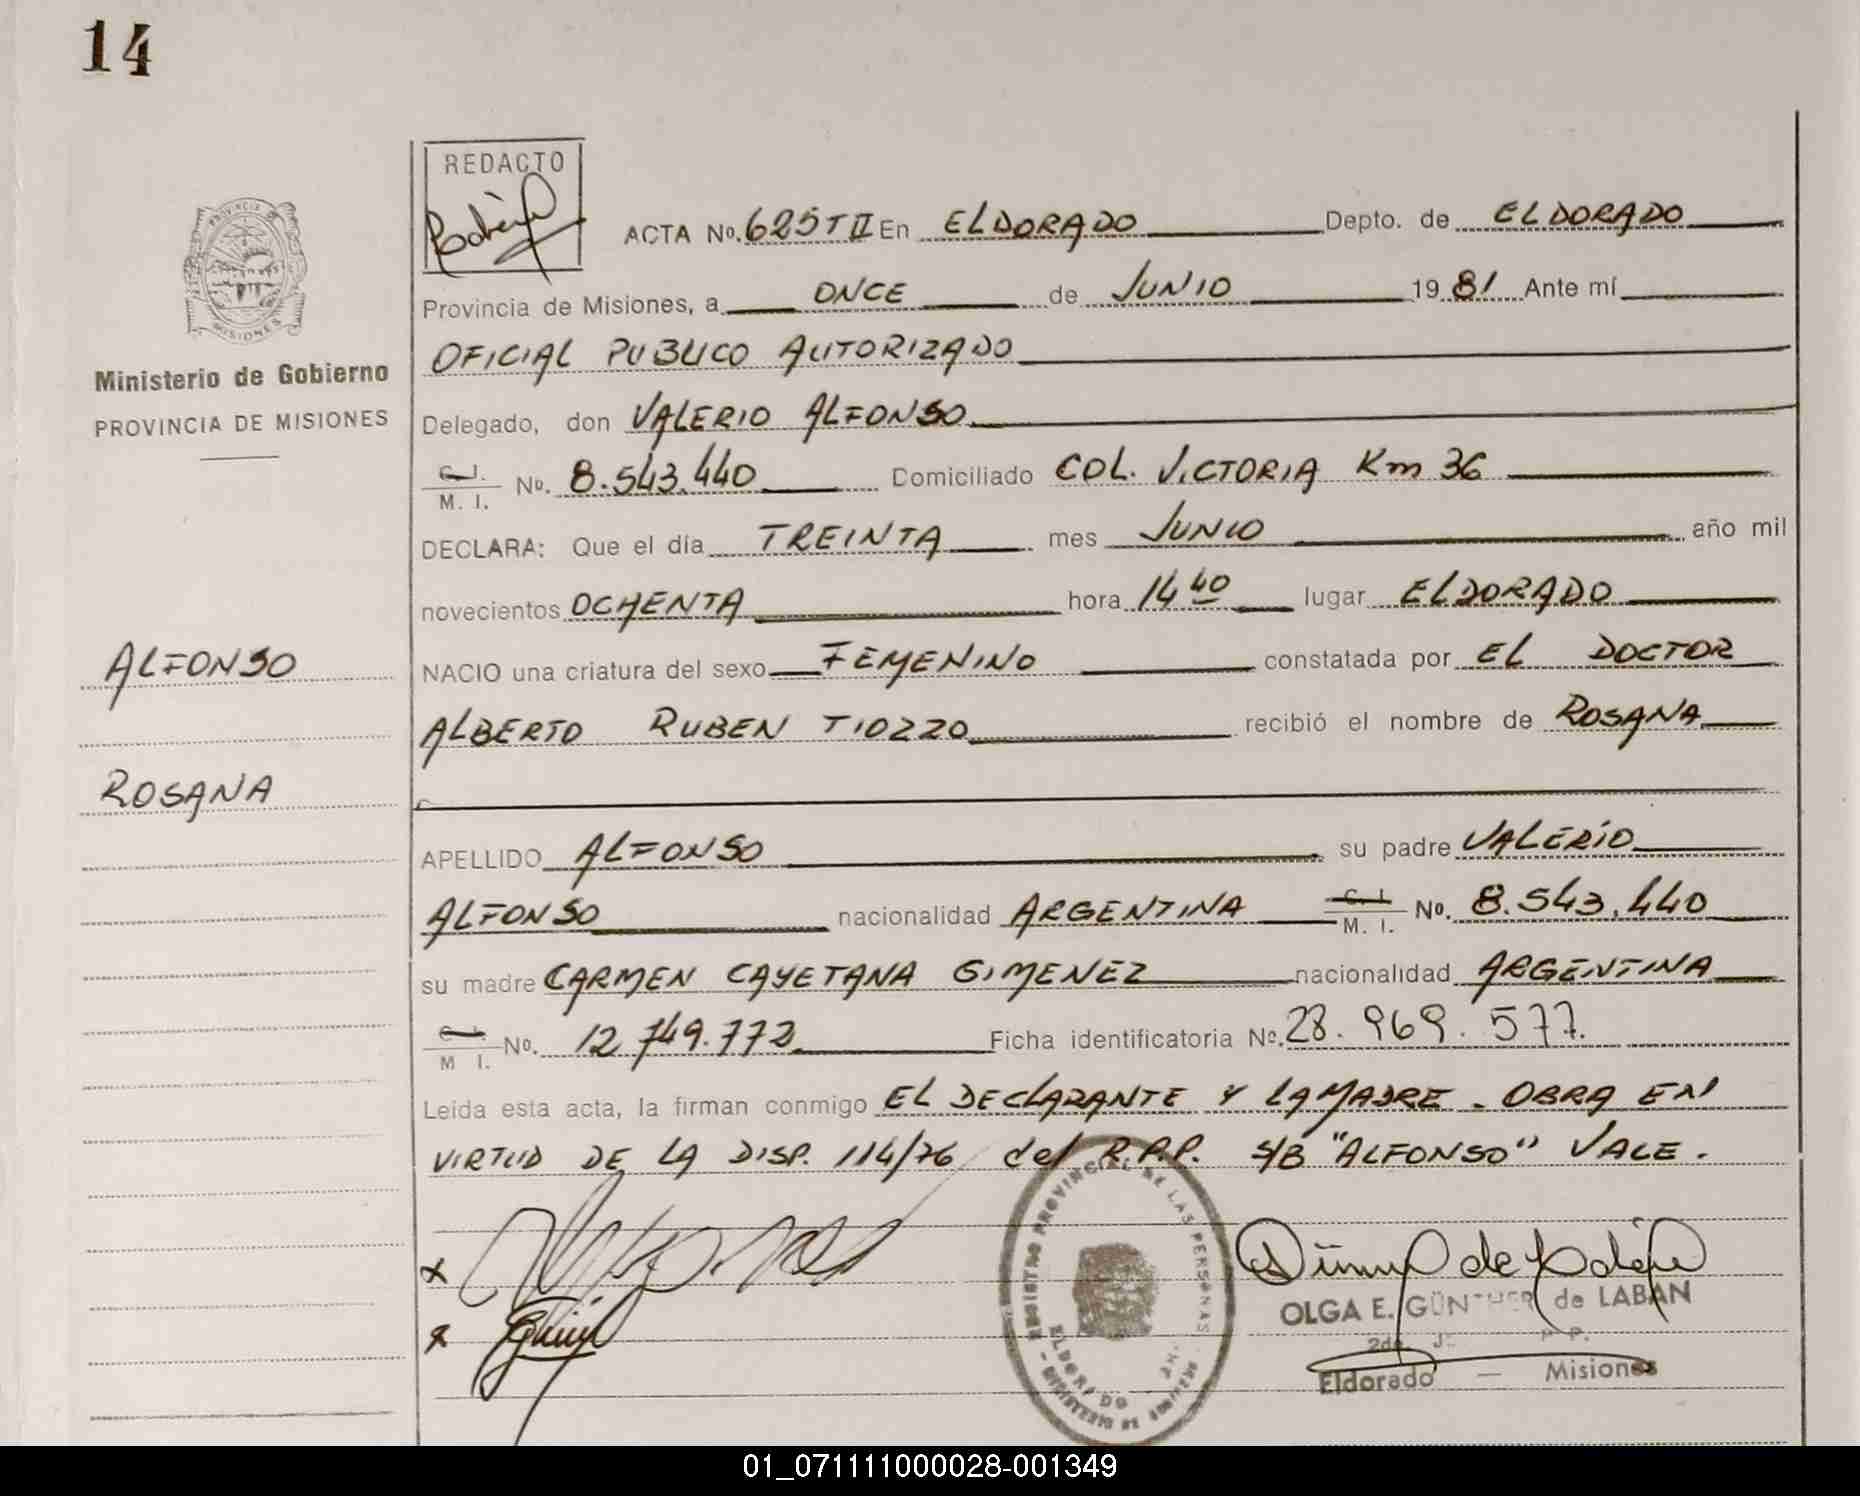 14
REDACTO
ACTA No. 625 T II En ELDORADO Depto. de ELDORADO
Provincia de Misiones, a ONCE de JUNIO 1981 Ante mí
OFICIAL PUBLICO AUTORIZADO
Ministerio de Gobierno
PROVINCIA DE MISIONES
Delegado, don VALERIO ALFONSO
C. I.
M. I. No. 8.543.440 Domiciliado COL. VICTORIA Km 36
DECLARA: Que el día TREINTA mes JUNIO año mil
novecientos OCHENTA hora 14 40 lugar ELDORADO
ALFONSO
NACIO una criatura del sexo FEMENINO constatada por EL DOCTOR
ALBERTO RUBEN TIOZZO recibió el nombre de ROSANA
ROSANA
APELLIDO ALFONSO su padre VALERIO
ALFONSO nacionalidad ARGENTINA C. I. M. I. No. 8.543.440
su madre CARMEN CAYETANA GIMENEZ nacionalidad ARGENTINA
M I. No. 12.749.772 Ficha identificatoria No. 28.969.577.
Leída esta acta, la firman conmigo EL DECLARANTE Y LA MADRE - OBRA EN
VIRTUD DE LA DISP. 114/76 del R.P.P. S/B "ALFONSO" VALE.
REGISTRO PROVINCIAL DE LAS PERSONAS
ELDORADO
OLGA E. GÜNTHER de LABAN
Eldorado — Misiones
01_071111000028-001349